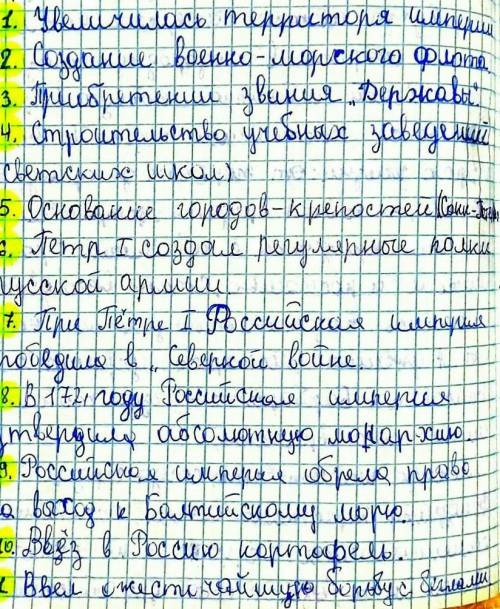 1. Увеличилась территоря империи
2. Создание военно-морского флота.
3. Приобретении звания „Державы".
4. Строительство учебных заведений
светских школ)
5. Основание городов-крепостей (Санк-Петер
6. Петр I создал регулярные полки
русской армии.
7. При Пётре I Российская империя
победила в „Северной войне.
8. В 172, году Российская империя
утвердила абсолютную монархию.
9. Российская империя обрела право
на выход к Балтийскому морю.
10. Ввёз в Россию картофель.
Ввел жестичайшую борьбу с